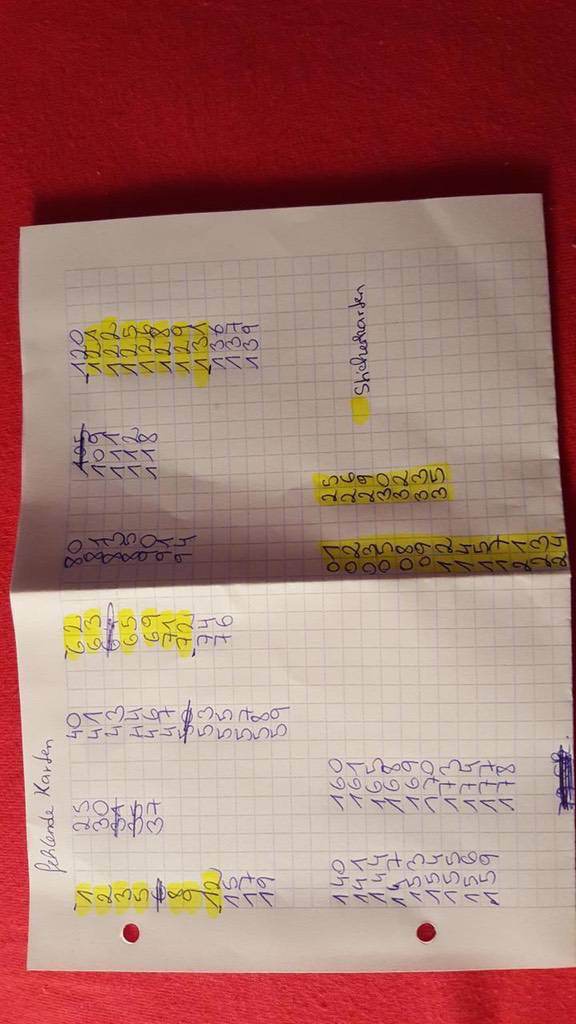 fehlende Karten
1
2
3
5
8
9
12
15
17
19
25
30
31
35
37
40
41
43
44
46
47
50
53
55
57
58
59
62
63
65
69
71
72
74
76
80
81
83
85
90
91
94
105
109
111
112
118
120
121
122
125
126
128
129
131
136
137
139
140
141
144
147
153
154
155
156
159
160
161
165
168
169
170
173
174
177
178
01
02
03
05
08
09
12
14
15
17
21
23
24
25
26
29
30
32
33
35
Stickerkarten